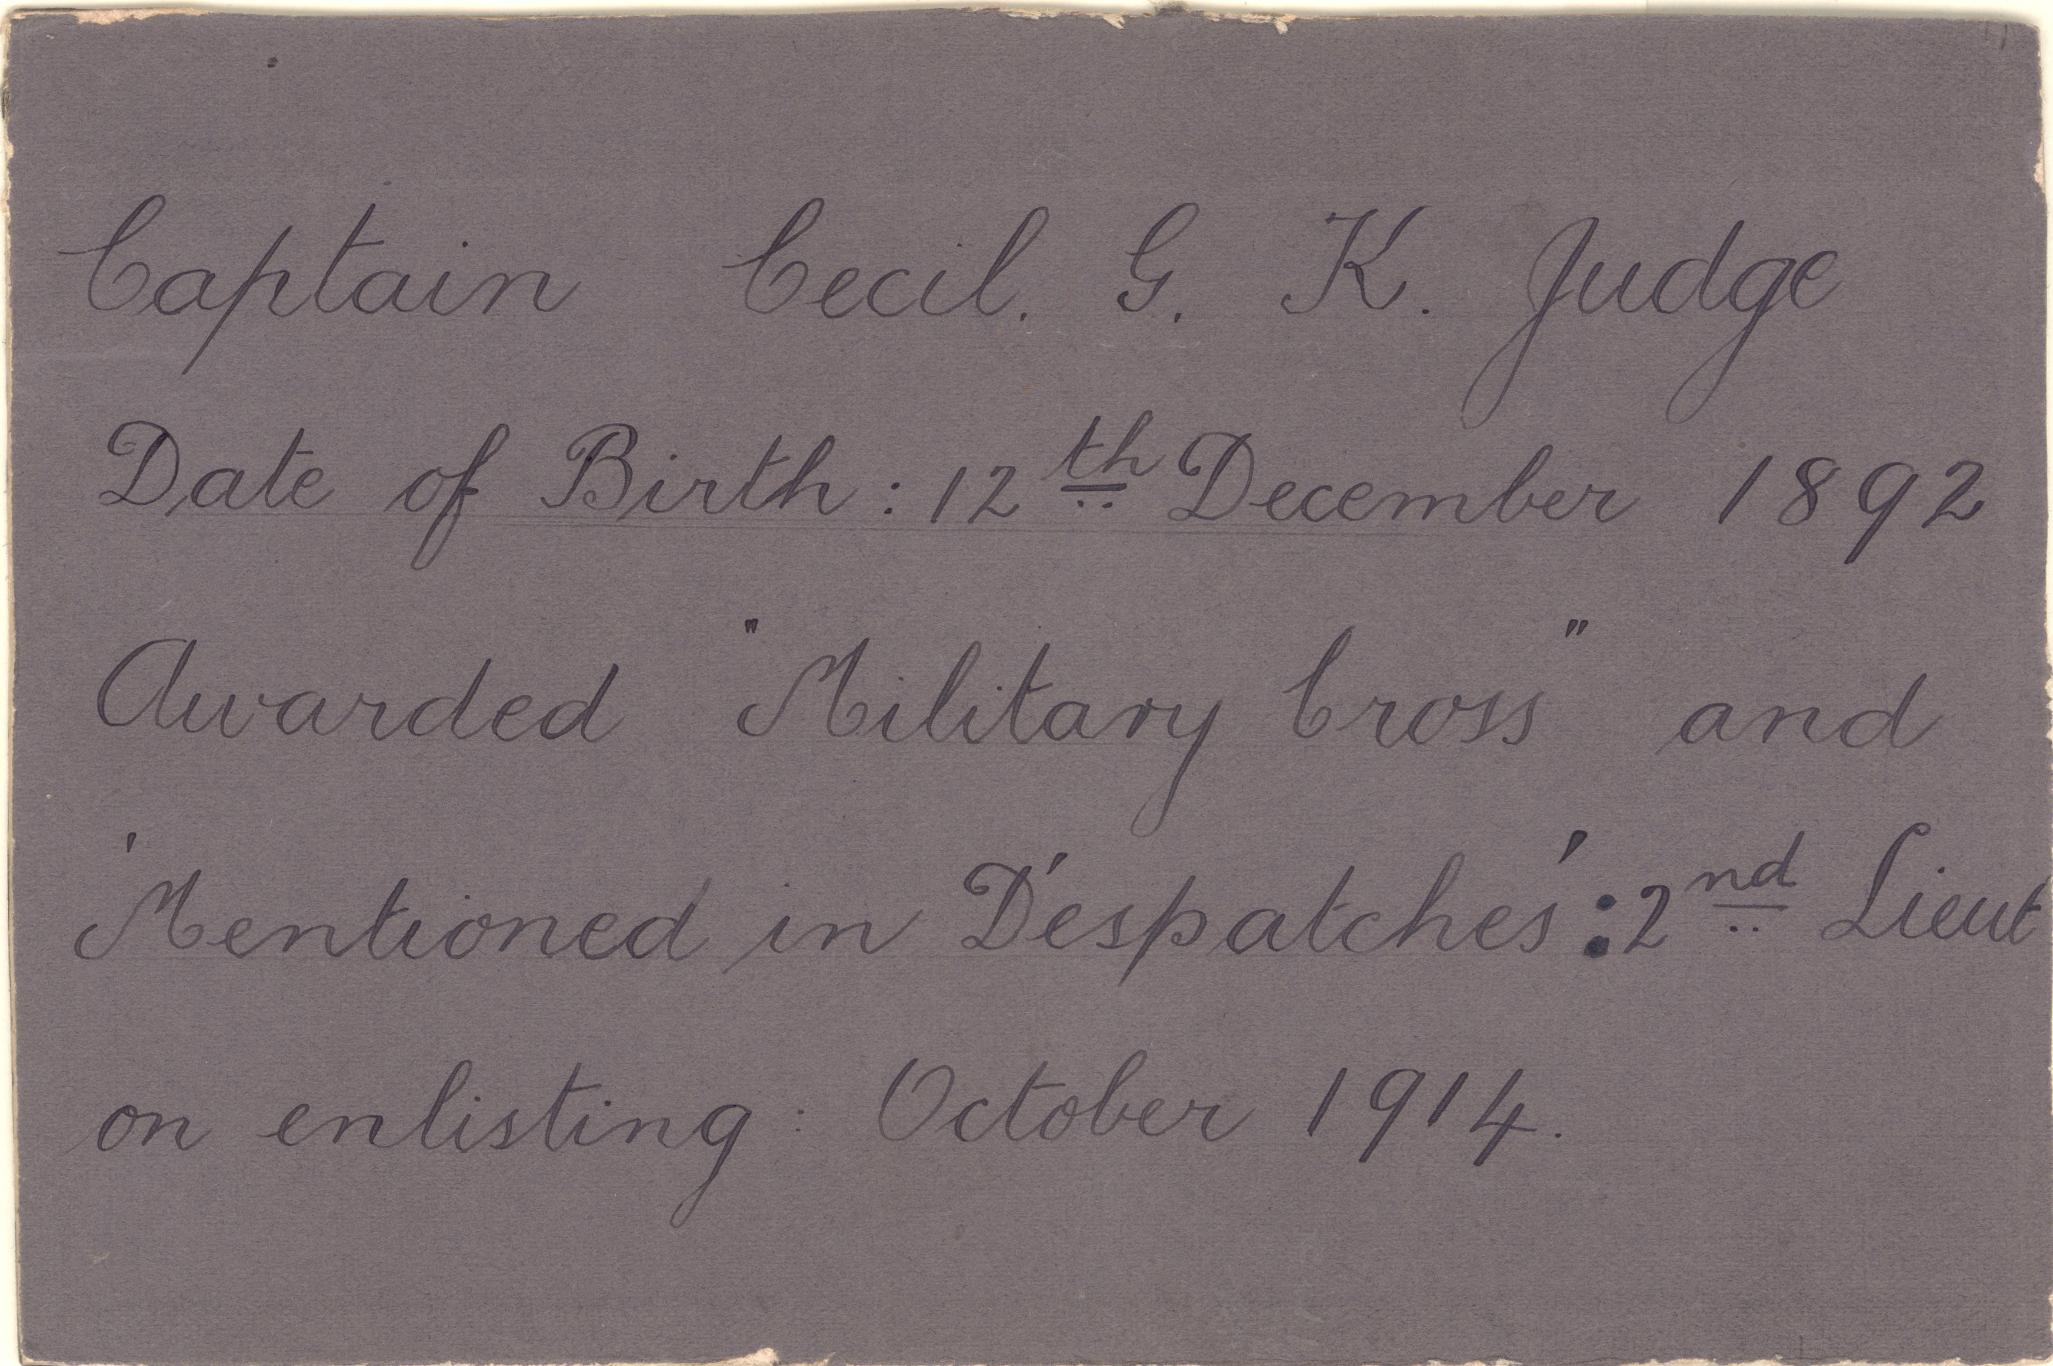 Captain Cecil. G. K. Judge
Date of Birth: 12th December 1892
Awarded "Military Cross" and
'Mentioned in D'espatches': 2nd Lieut
on enlisting: October 1914.